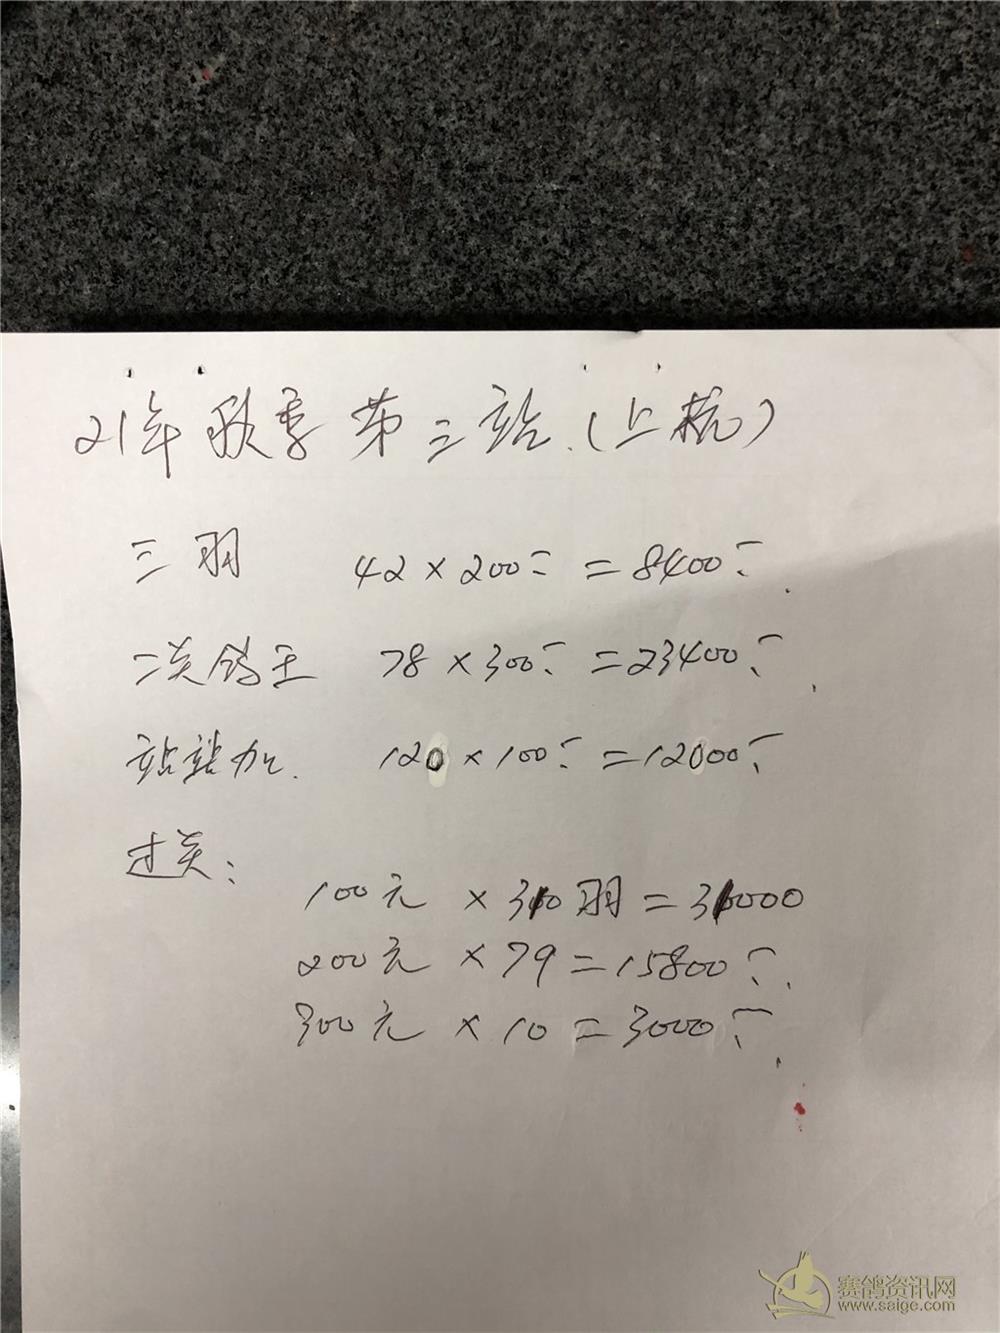 21年秋季第三站.(上杭)
三羽 42×200元=8400元.
二关鸽王 78×300元=23400元.
站站加. 120×100元=12000元.
过关:
100元×310羽=31000
200元×79=15800元.
300元×10=3000元.
赛鸽资讯网
www.saige.com